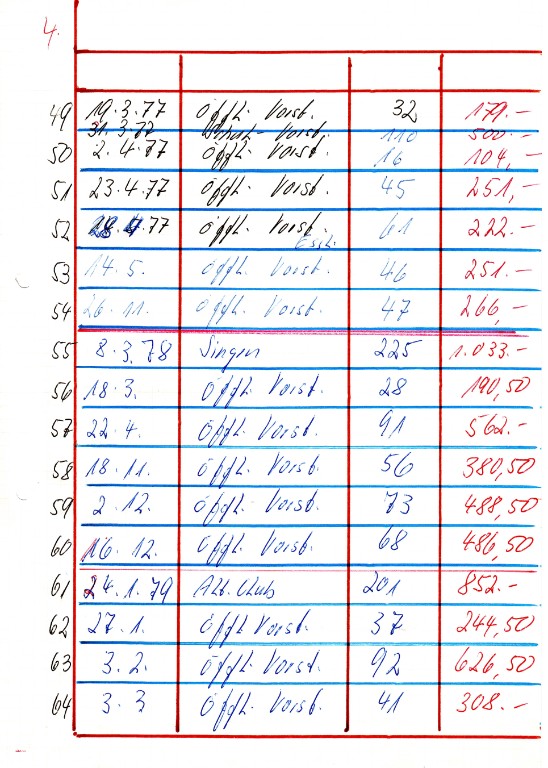 4.
49 19.3.77 Öfftl. Vorst. 32 179.-
31.3.77 Vorst. 110 500.-
50 2.4.77 Öfftl. Vorst. 16 104,-
51 23.4.77 Öfftl. Vorst. 45 251,-
52 28.4.77 Öfftl. Vorst. 61 222.-
53 14.5. Öfftl. Vorst. 46 251.-
54 26.11. Öfftl. Vorst. 47 266,-
55 8.3.78 Singen 225 1.033.-
56 18.3. Öfftl. Vorst. 28 190,50
57 22.4. Öfftl. Vorst. 91 562.-
58 18.11. Öfftl. Vorst. 56 380,50
59 2.12. Öfftl. Vorst. 73 488,50
60 16.12. Öfftl. Vorst. 68 486,50
61 24.1.79 Alt. Club 201 852.-
62 27.1. Öfftl. Vorst. 37 244,50
63 3.2. Öfftl. Vorst. 92 626,50
64 3.3 Öfftl. Vorst. 41 308.-